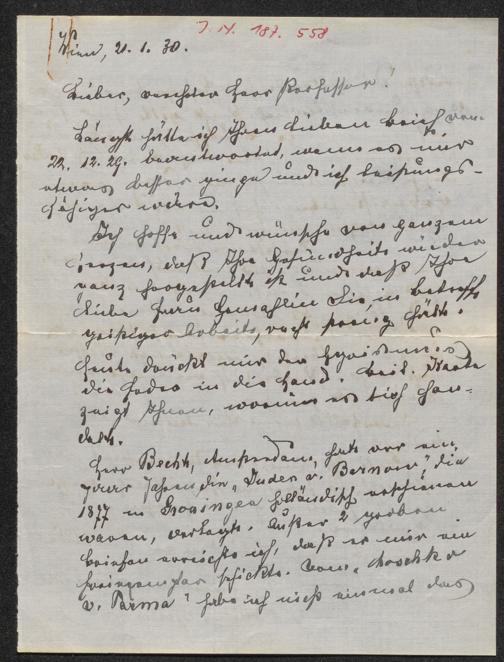 J. N. 187. 558
Wien, 21. 1. 30.
Lieber, verehrter Herr Professor!
Längst hätte ich Ihren lieben Brief vom
22. 12. 29. beantwortet, wenn es mir
etwas besser ginge und ich leistungs-
fähiger wäre.
Ich hoffe und wünsche von ganzem
Herzen, daß Ihre Gesundheit wieder
ganz hergestellt ist und daß Ihre
liebe Frau Gemahlin Sie in betreffs
geistiger Arbeit, recht hält.
Heute drückt mir der
die Feder in die Hand. Beil. Karte
zeigt Ihnen, worum es sich han-
delt.
Herr Becht, Amsterdam, hat vor ein
paar Jahren die „Juden v. Barnow", die
1877 in Groningen holländisch erschienen
waren, verlegt. Außer 2 groben
Briefen erreichte ich, daß er mir ein
Freiexemplar schickte. Vom „Moschko
v. Parma" habe ich nicht einmal das